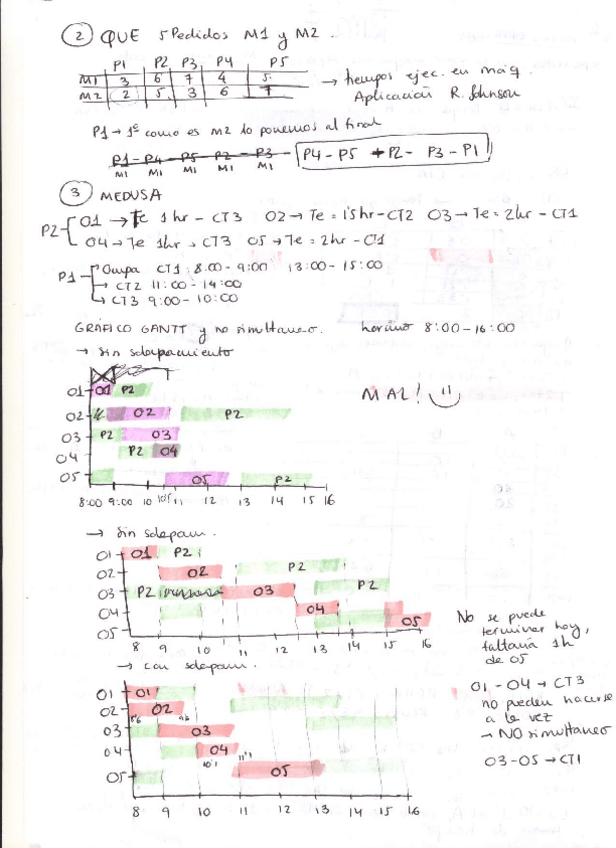 ② QUE 5 Pedidos M1 y M2.
P1 P2 P3 P4 P5
M1 3 6 7 4 5
M2 2 5 3 6 7
→ tiempos ejec. en máq.
Aplicación R. Johnson
P1 → 1º como es M2 lo ponemos al final
P1 - P4 - P5 P2 - P3 - P4 - P5 → P2 - P3 - P1
M1 M1 M1 M1 M1
③ MEDUSA
P2 O1 → Te 1 hr - CT3 O2 → Te = 1'5 hr - CT2 O3 → Te = 2hr - CT1
O4 → Te 1hr → CT3 O5 → Te = 2hr - CT1
P1 → Ocupa CT1: 8:00 - 9:00 13:00 - 15:00
→ CT2 11:00 - 14:00
→ CT3 9:00 - 10:00
GRÁFICO GANTT y no simultaneo. horario 8:00 - 16:00
→ sin solapamiento
MAL!
O1 O1 P2
O2 O2 P2
O3 P2 O3
O4 P2 O4
O5 O5 P2
8:00 9:00 10 10'5 11 12 13 14 15 16
→ Sin solapam.
O1 O1 P2
O2 O2 P2
O3 P2 O3 P2
O4 O4
O5 O5
8 9 10 11 12 13 14 15 16
No se puede
terminar hoy,
faltaría 1h
de O5
→ con solapam.
O1 O1
O2 O2
O3 O3
O4 O4
10'1 11'1
O5 O5
8 9 10 11 12 13 14 15 16
O1 - O4 → CT3
no pueden hacerse
a la vez
→ NO simultaneo
O3 - O5 → CT1